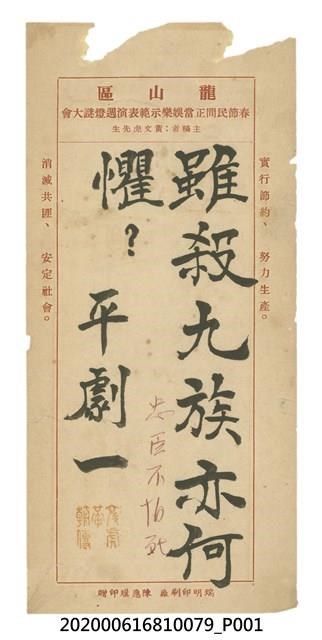 區山龍
會大謎燈週演表範示樂娛當正間民節春
生先虎文黃：者稿主
實行節約、努力生產。
雖殺九族亦何
懼？
平劇一
忠臣不怕死
消滅共匪、安定社會。
瑞明印刷廠 陳應堀印贈
202000616810079_P001